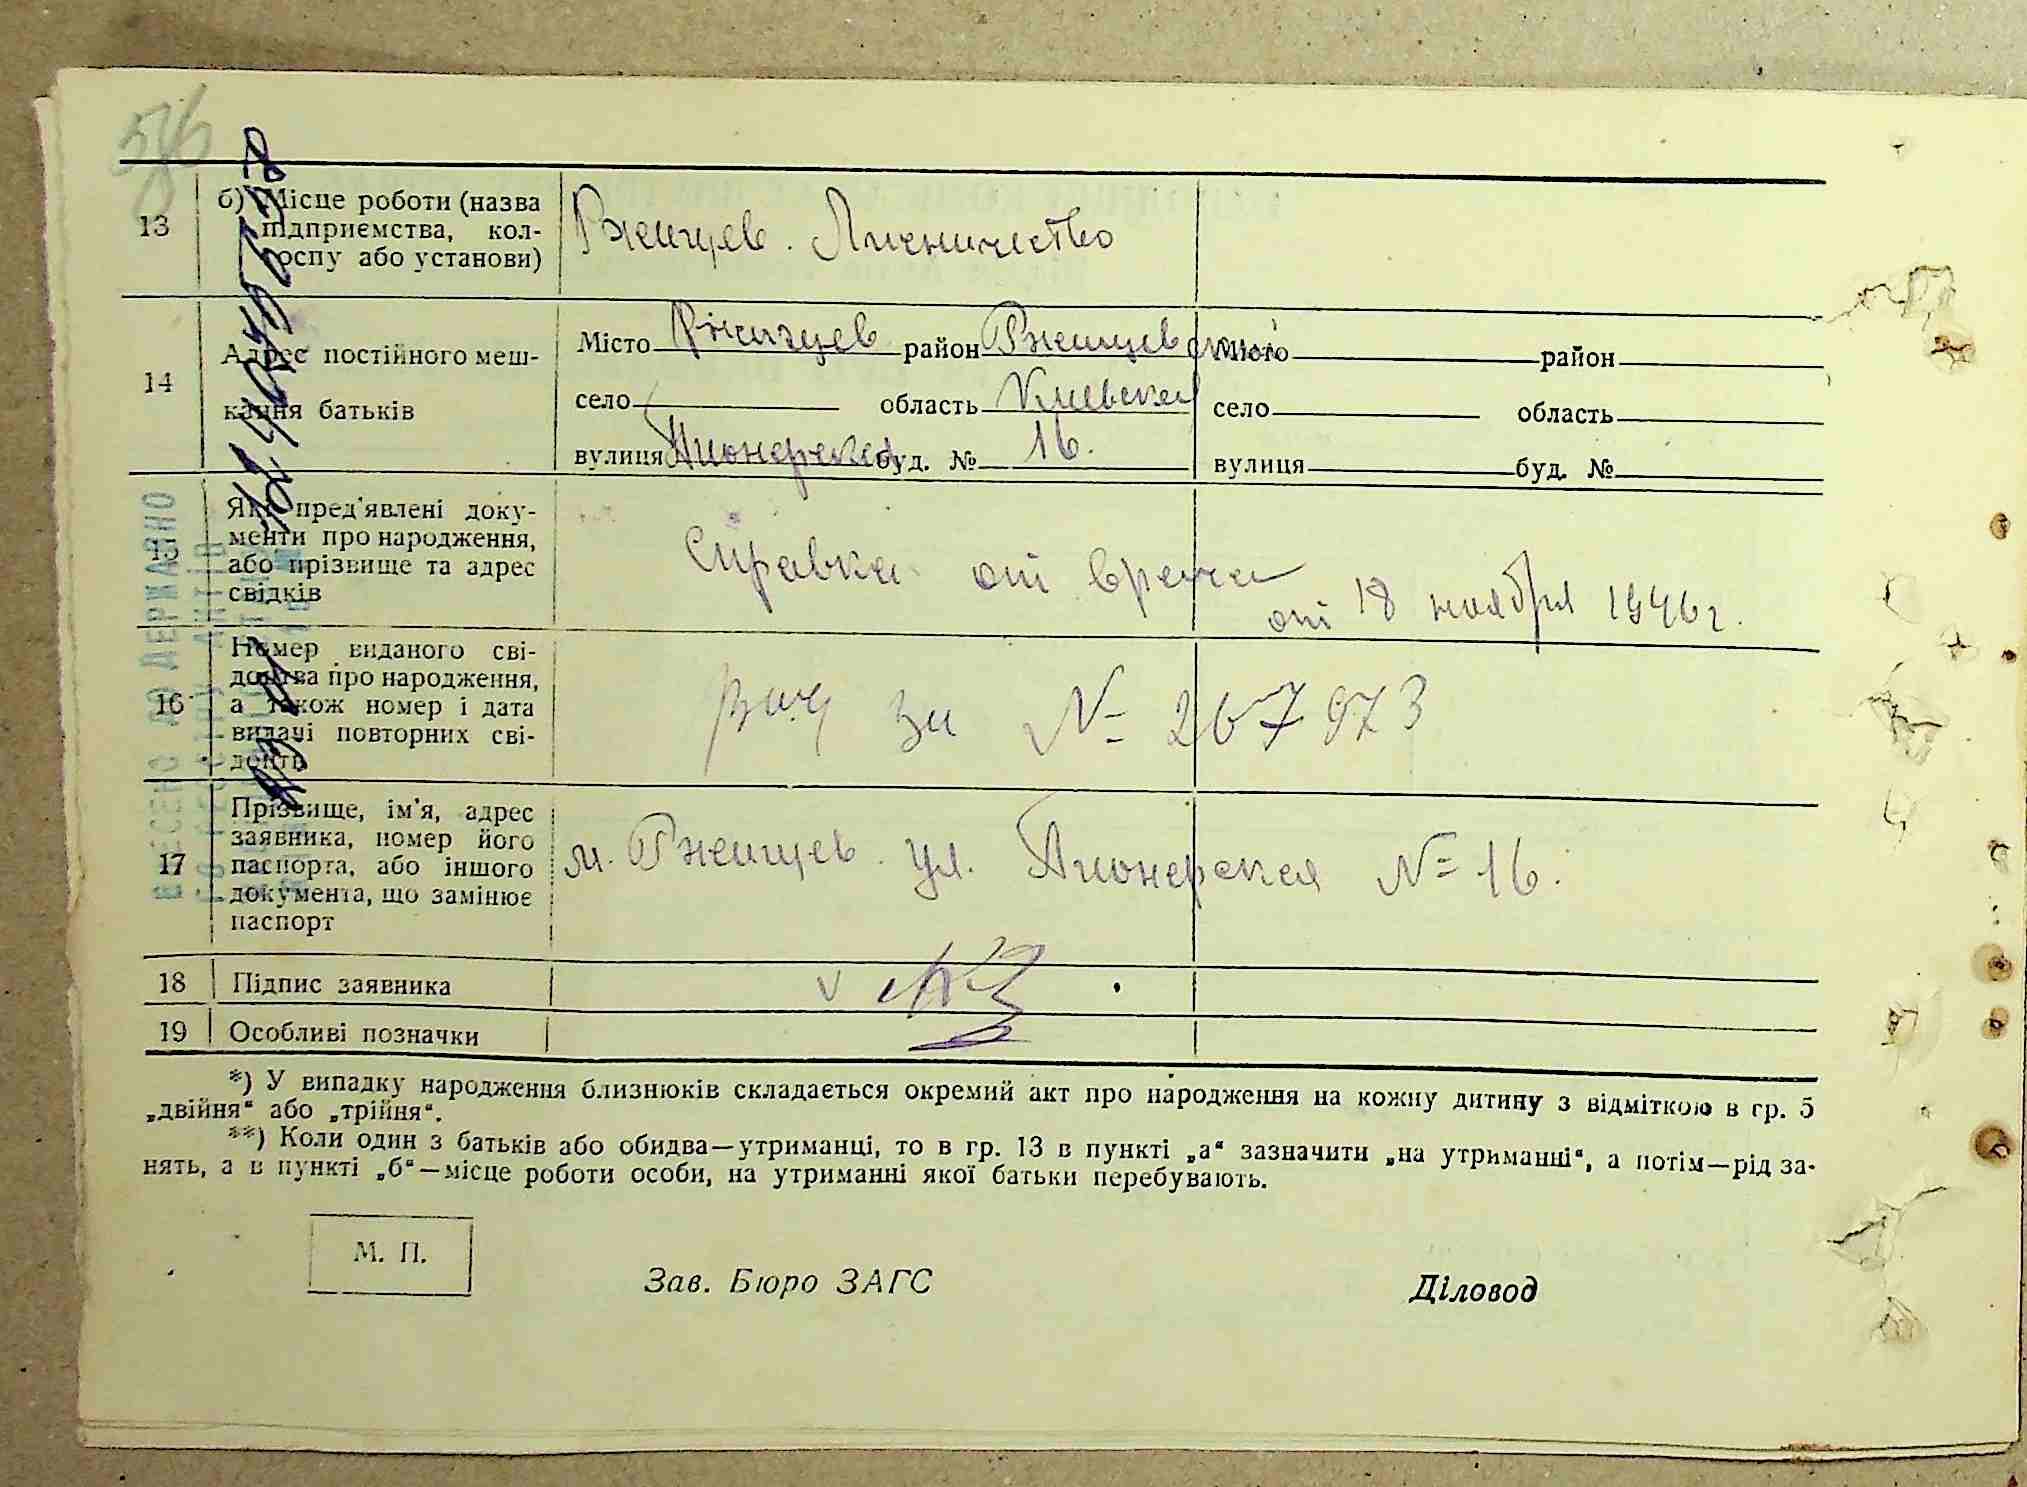 13
б) Місце роботи (назва
підприємства, кол-
госпу або установи)
Ржищев. Лисничество
14
Адрес постійного меш-
кання батьків
Місто Ржищев район Ржищевский
село область Киевская
вулиця Пионерская буд. № 16.
Місто район
село область
вулиця буд. №
15
Які пред'явлені доку-
менти про народження,
або прізвище та адрес
свідків
справка от врача
от 18 ноября 1946 г.
16
Номер виданого сві-
доцтва про народження,
а також номер і дата
видачі повторних сві-
доцтв
за № 267973
17
Прізвище, ім'я, адрес
заявника, номер його
паспорта, або іншого
документа, що замінює
паспорт
м. Ржищев. ул. Пионерская № 16.
18 Підпис заявника
19 Особливі позначки
*) У випадку народження близнюків складається окремий акт про народження на кожну дитину з відміткою в гр. 5
„двійня“ або „трійня“.
**) Коли один з батьків або обидва—утриманці, то в гр. 13 в пункті „а“ зазначити „на утриманні“, а потім—рід за-
нять, а в пункті „б“—місце роботи особи, на утриманні якої батьки перебувають.
М. П.
Зав. Бюро ЗАГС
Діловод
ВНЕСЕНО ДО ДЕРЖАВНО